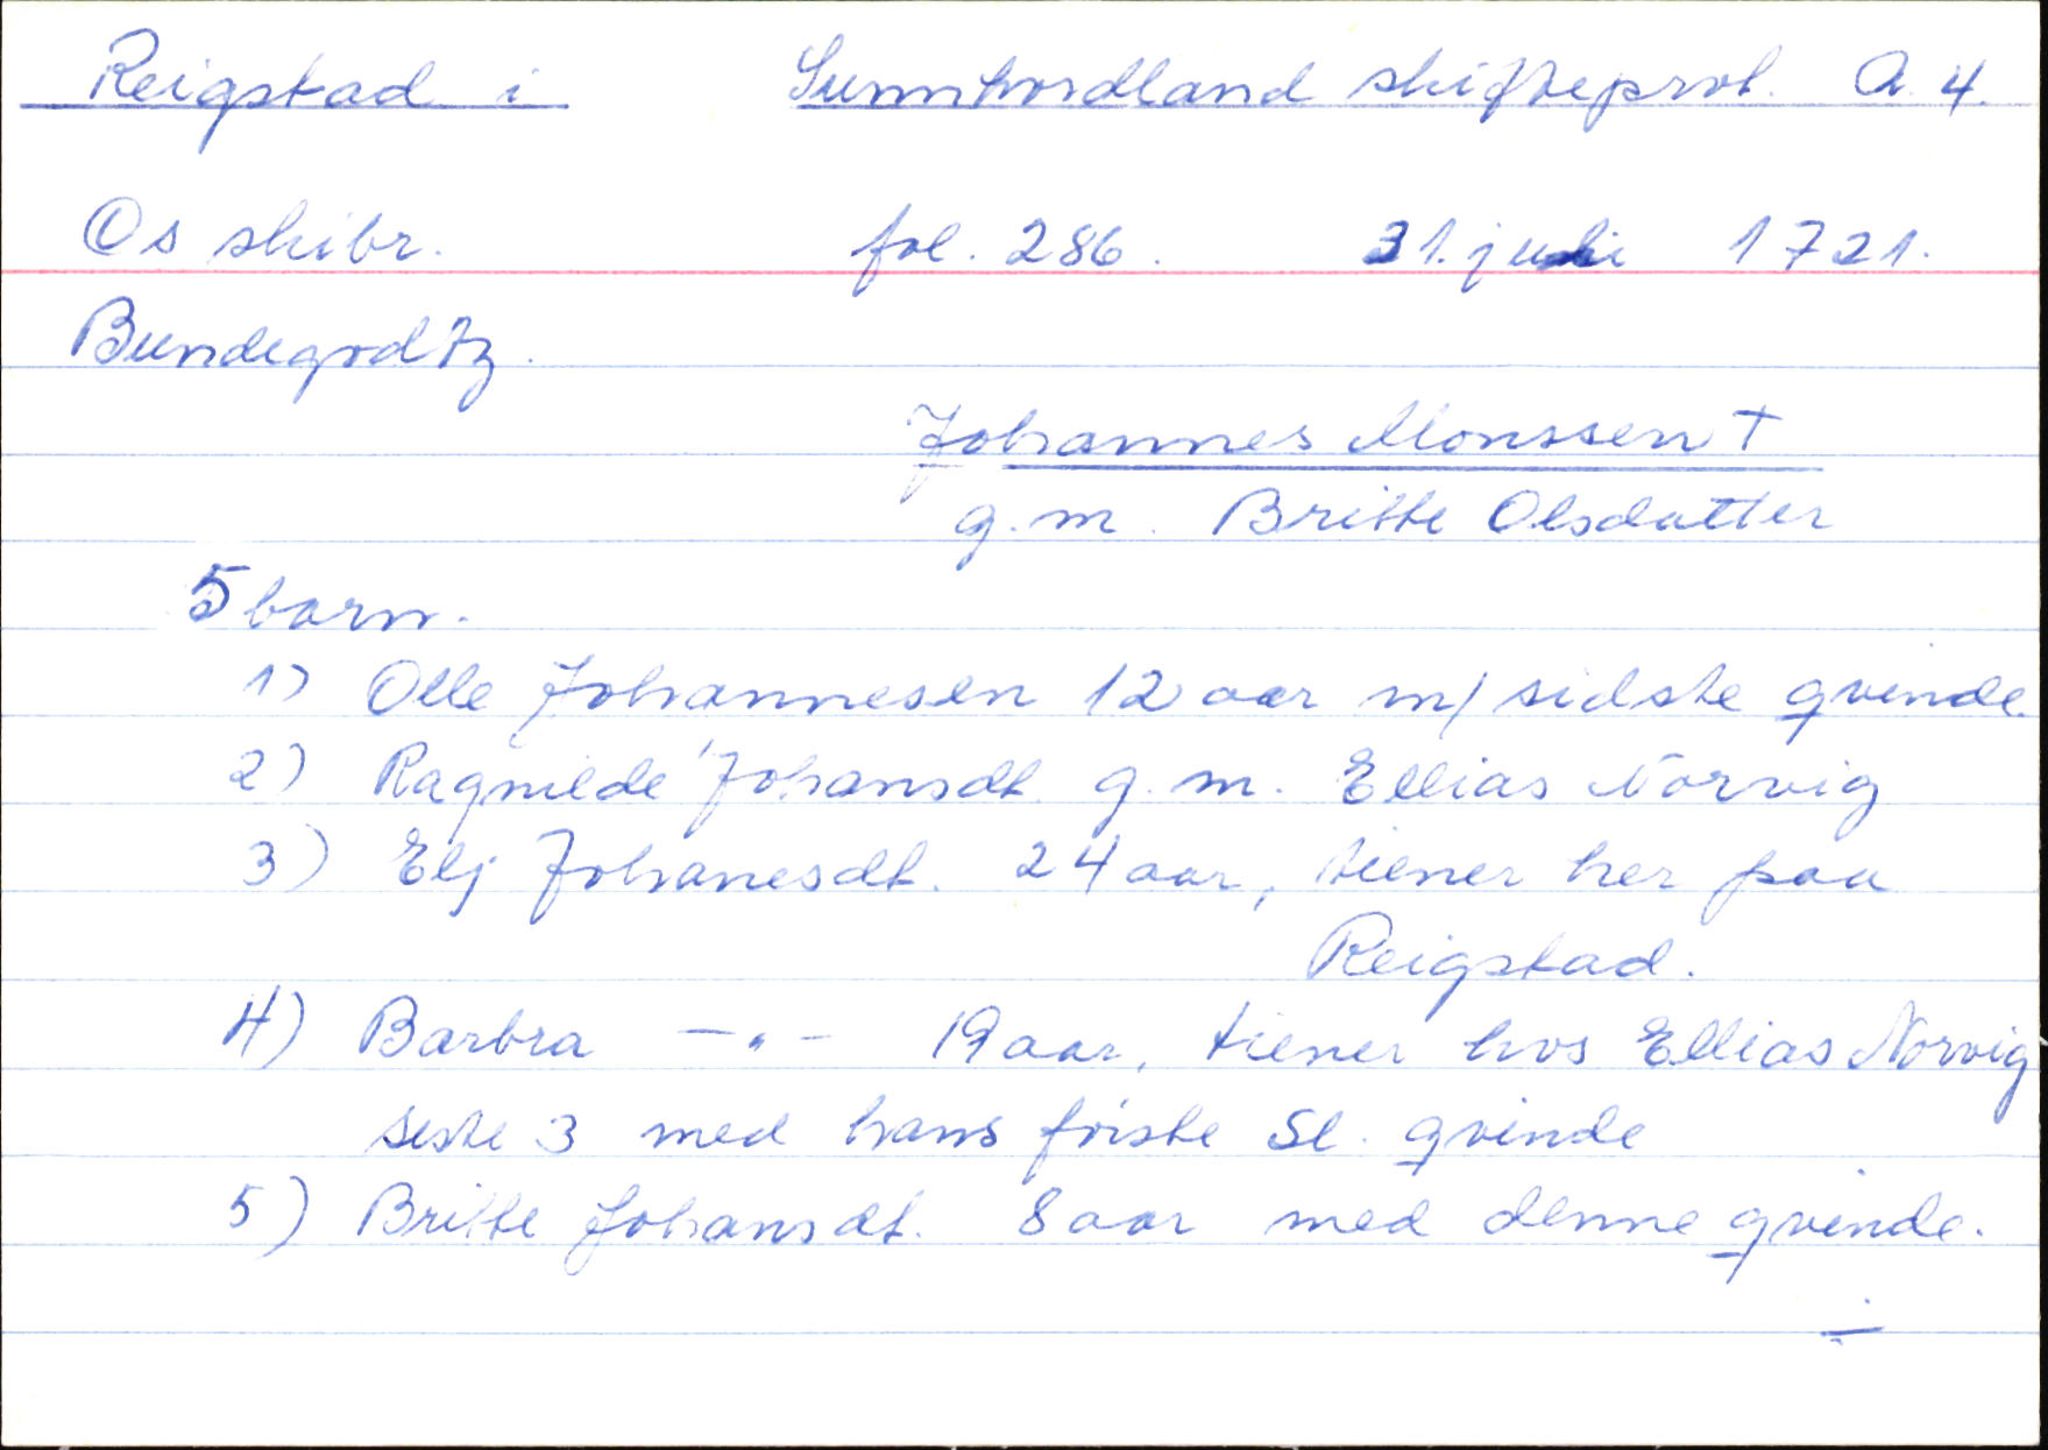 Reigstad i Sunnhordland skifteprot. A. 4.
Os skibr. fol. 286. 31. juli 1721.
Bundegodtz.
Johannes Monssen †
g.m. Britte Olsdatter
5 barn.
1) Olle Johannesen 12 aar m/ sidste qvinde.
2) Ragnilde Johansdt. g.m. Ellias Norvig
3) Elj Johanesdt. 24 aar, tiener her paa
Reigstad.
4) Barbra —"— 19 aar, tiener hos Ellias Norvig
seste 3 med hans føiste Sl. qvinde
5) Britte Johansdt. 8 aar med denne qvinde.